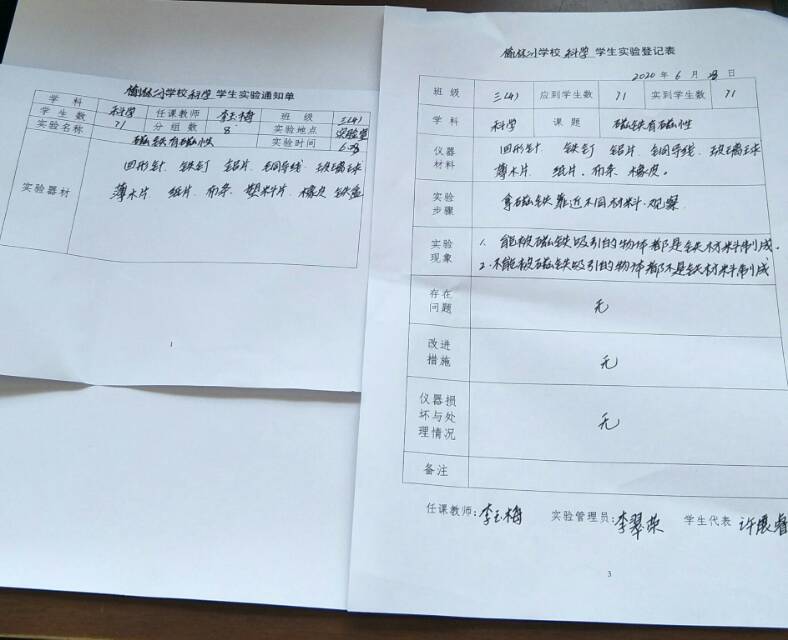 小学校科学学生实验通知单
学科 科学 任课教师 李玉梅 班级 三(4)
学生数 71 分组数 8 实验地点 实验室
实验名称 磁铁有磁性 实验时间 6.28
实验器材
回形针 铁钉 铝片 铜导线 玻璃球
薄木片 纸片 布条 塑料片 橡皮 铁盒
1
小学校科学学生实验登记表
2020年6月28日
班级 三(4) 应到学生数 71 实到学生数 71
学科 科学 课题 磁铁有磁性
仪器材料
回形针 铁钉 铝片 铜导线 玻璃球
薄木片 纸片 布条 橡皮。
实验步骤
拿磁铁靠近不同材料,观察
实验现象
1. 能被磁铁吸引的物体都是铁材料制成。
2.不能被磁铁吸引的物体都不是铁材料制成
存在问题 无
改进措施 无
仪器损坏与处理情况 无
备注
任课教师:李玉梅 实验管理员:李翠荣 学生代表 许晨睿
3